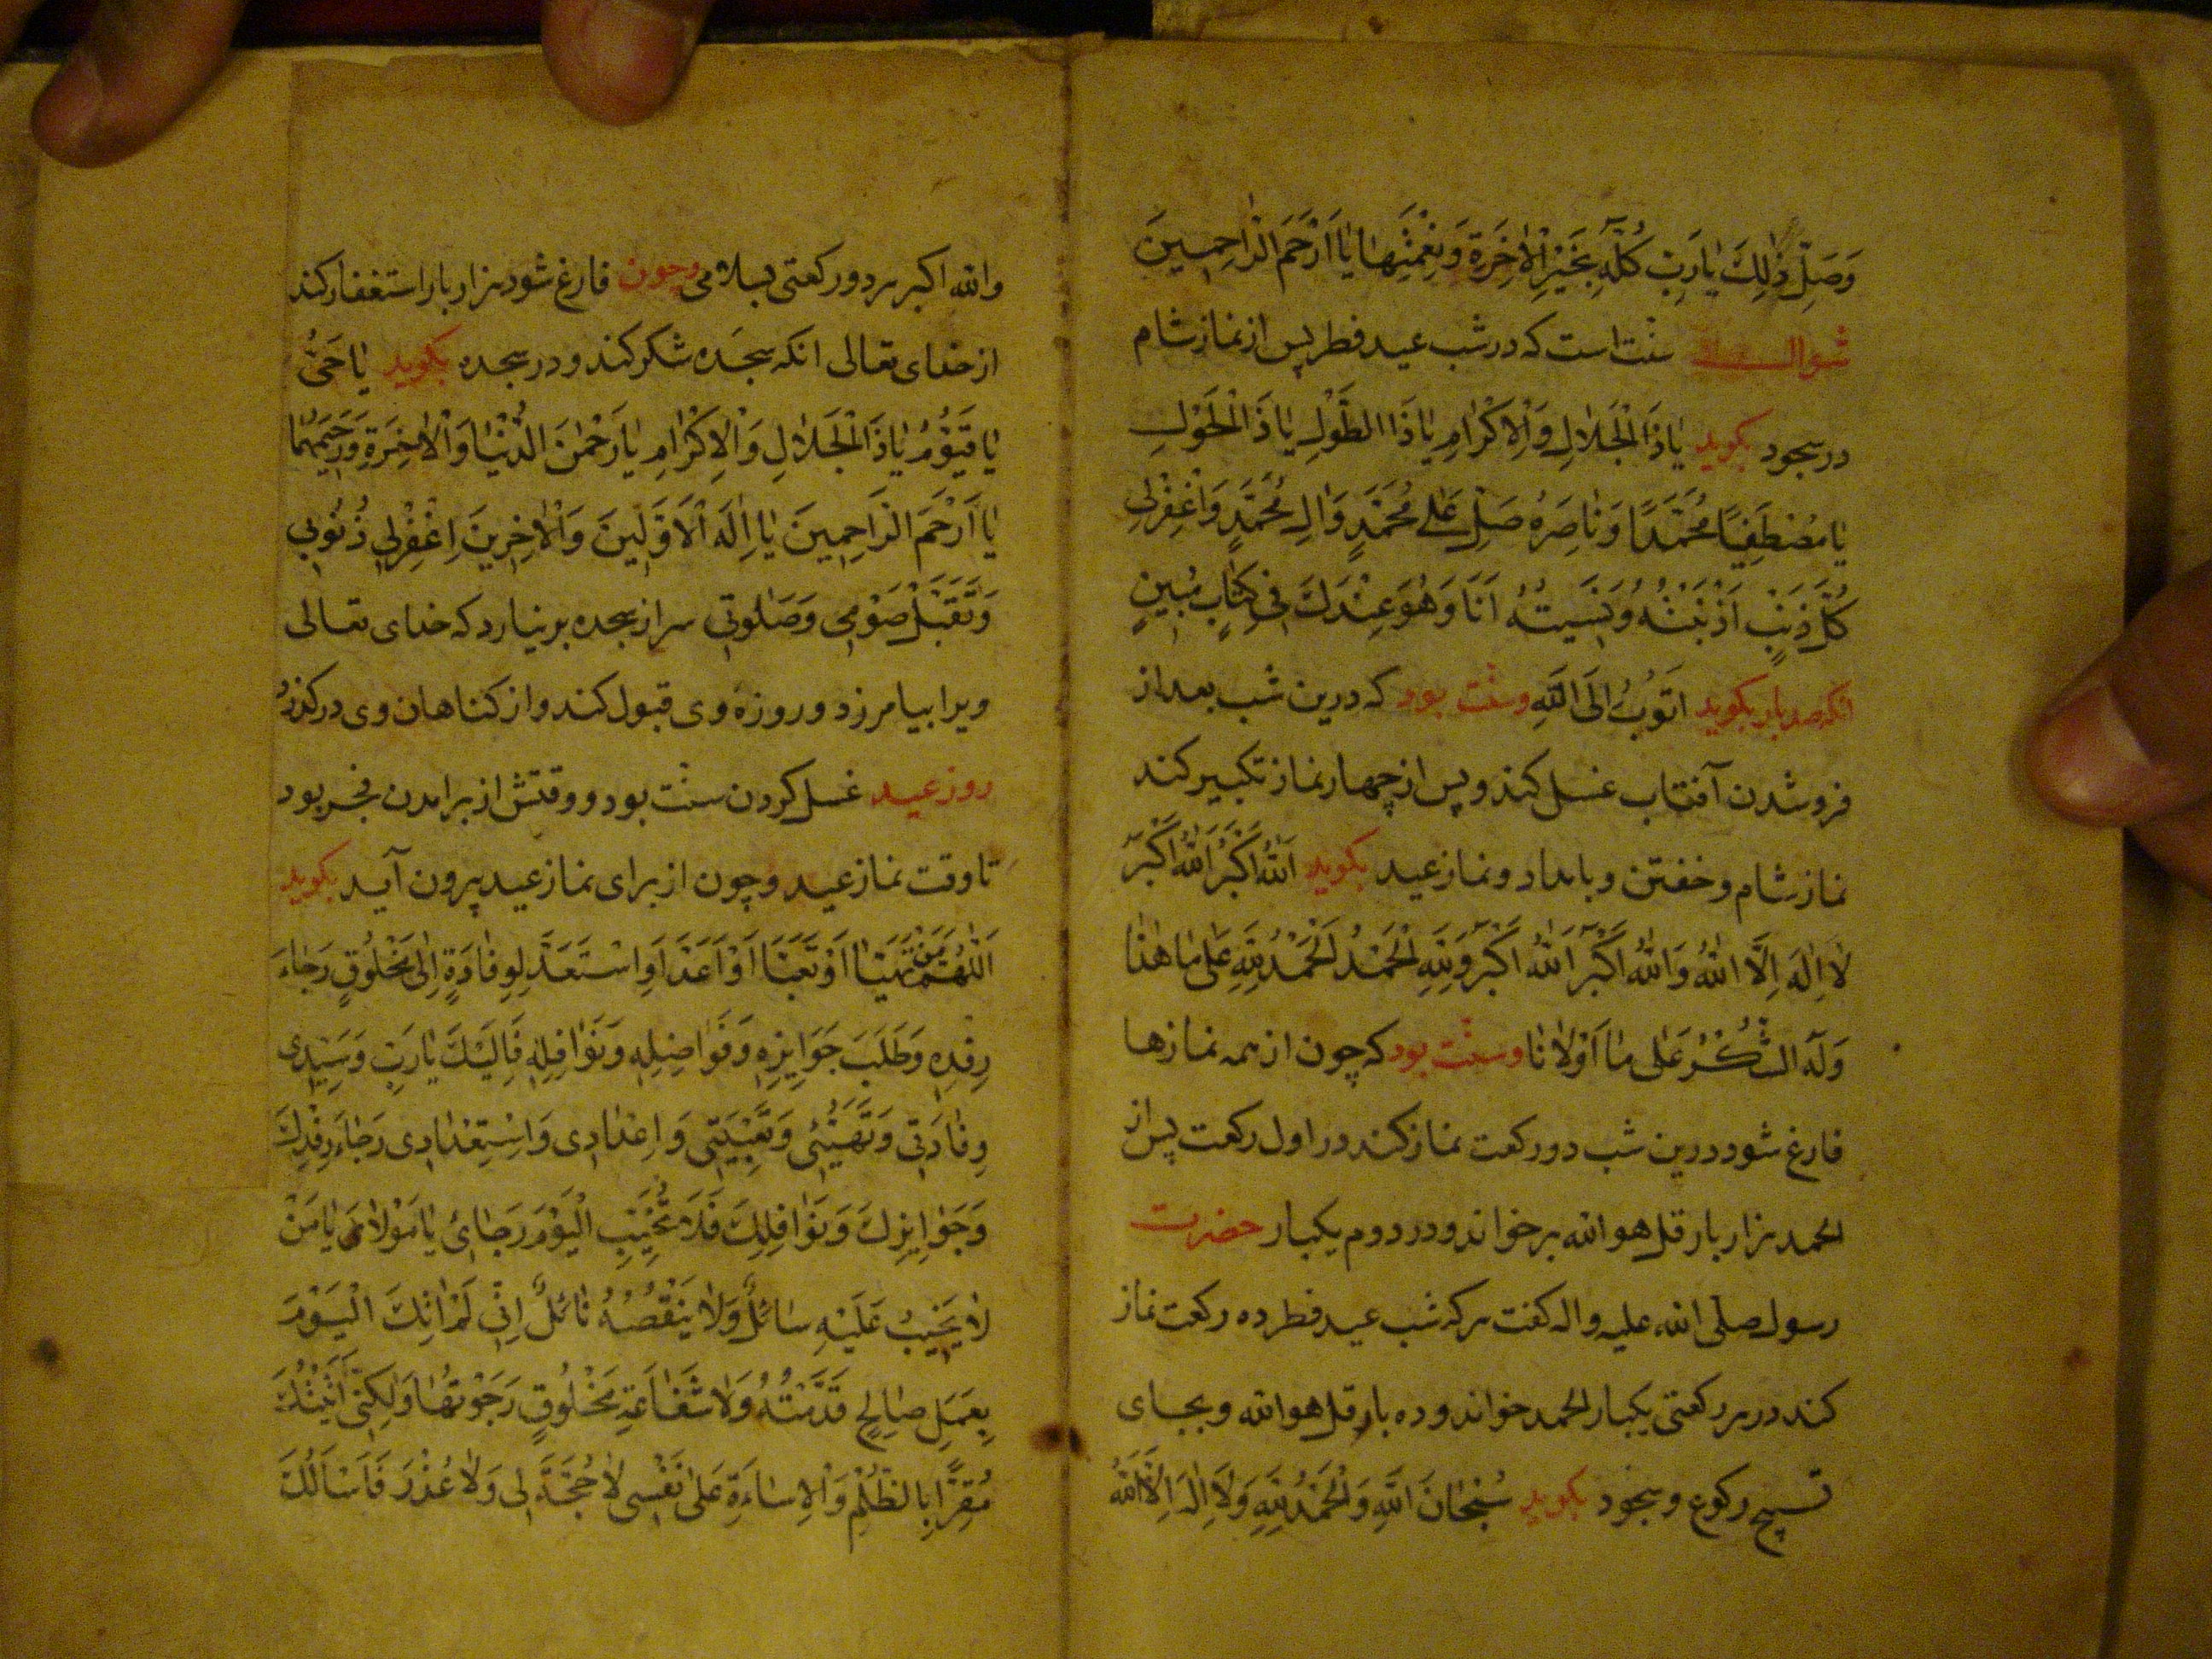 وَصَلِّ ذٰلِكَ يٰارَبِّ كُلَّهُ بِخَيْرِ الْاٰخِرَةِ وَنِعْمَتِهٰا يٰا اَرْحَمَ الرّٰاحِمِينَ
شوال سنّت است که در شب عید فطر پس از نماز شام
در سجود بکوید یٰاذَا الْجَلٰالِ وَالْاِكْرٰامِ یٰاذَا الطَّوْلِ یٰاذَا الْحَوْلِ
یٰا مُصْطَفِيًا مُحَمَّدًا وَنٰاصِرَهُ صَلِّ عَلٰى مُحَمَّدٍ وَاٰلِ مُحَمَّدٍ وَاغْفِرْلِي
كُلَّ ذَنْبٍ اَذْنَبْتُهُ وَنَسِيتُهُ اَنَا وَهُوَ عِنْدَكَ فِي كِتٰابٍ مُبِينٍ
انکه صد بار بکوید اَتُوبُ اِلَى اللّٰهِ وسنّت بود که درین شب بعد از
فروشدن آفتاب غسل کند و پس از چهار نماز تکبیر کند
نماز شام و خفتن و بامداد و نماز عید بکوید اَللّٰهُ اَكْبَرُ اَللّٰهُ اَكْبَرُ
لٰا اِلٰهَ اِلَّا اللّٰهُ وَاللّٰهُ اَكْبَرُ اَللّٰهُ اَكْبَرُ وَلِلّٰهِ الْحَمْدُ اَلْحَمْدُ لِلّٰهِ عَلٰى مٰا هَدٰانٰا
وَلَهُ الشُّكْرُ عَلٰى مٰا اَوْلٰانٰا وسنّت بود که چون از همه نمازها
فارغ شود درین شب دو رکعت نماز کند در اول رکعت پس از
الحمد هزار بار قل هو الله برخواند و در دوم یکبار حضرت
رسول صلی الله علیه واله کفت هر که شب عید فطر ده رکعت نماز
کند در هر رکعتی یکبار الحمد خواند و ده بار قل هو الله و بجای
تسبیح رکوع و سجود بکوید سُبْحٰانَ اللّٰهِ وَالْحَمْدُ لِلّٰهِ وَلٰا اِلٰهَ اِلَّا اللّٰهُ
والله اکبر هر دو رکعتی بسلامی وچون فارغ شود هزار بار استغفار کند
از خدای تعالی انکه سجده شکر کند و در سجده بکوید یٰا حَيُّ
یٰا قَيُّوْمُ یٰاذَا الْجَلٰالِ وَالْاِكْرٰامِ یٰا رَحْمٰنَ الدُّنْيٰا وَالْاٰخِرَةِ وَرَحِيمَهُمٰا
یٰا اَرْحَمَ الرّٰاحِمِينَ یٰا اِلٰهَ الْاَوَّلِينَ وَالْاٰخِرِينَ اِغْفِرْلِي ذُنُوبِي
وَتَقَبَّلْ صَوْمِي وَصَلٰوتِي سر از سجده برنیارد که خدای تعالی
ویرا بیامرزد و روزه وی قبول کند و از کناهان وی درکذرد
روز عید غسل کردن سنّت بود و وقتش از برامدن فجر بود
تا وقت نماز عید وچون از برای نماز عید بیرون آید بکوید
اَللّٰهُمَّ مَنْ تَهَيَّاَ اَوْ تَعَبَّاَ اَوْ اَعَدَّ اَوِ اسْتَعَدَّ لِوِفٰادَةٍ اِلٰى مَخْلُوقٍ رَجٰاءَ
رِفْدِهِ وَطَلَبَ جَوٰائِزِهِ وَفَوٰاضِلِهِ وَنَوٰافِلِهِ فَاِلَيْكَ یٰا رَبِّ وَسَيِّدِي
وِفٰادَتِي وَتَهْيِئَتِي وَتَعْبِيَتِي وَاِعْدٰادِي وَاسْتِعْدٰادِي رَجٰاءَ رِفْدِكَ
وَجَوٰائِزِكَ وَنَوٰافِلِكَ فَلٰا تُخَيِّبِ الْيَوْمَ رَجٰائِي یٰا مَوْلٰايَ یٰا مَنْ
لٰا يَخِيبُ عَلَيْهِ سٰائِلٌ وَلٰا يَنْقُصُهُ نٰائِلٌ اِنِّي لَمْ اٰتِكَ الْيَوْمَ
بِعَمَلٍ صٰالِحٍ قَدَّمْتُهُ وَلٰا شَفٰاعَةِ مَخْلُوقٍ رَجَوْتُهٰا وَلٰكِنِّي اَتَيْتُكَ
مُقِرًّا بِالظُّلْمِ وَالْاِسٰاءَةِ عَلٰى نَفْسِي لٰا حُجَّةَ لِي وَلٰا عُذْرَ فَاَسْاَلُكَ